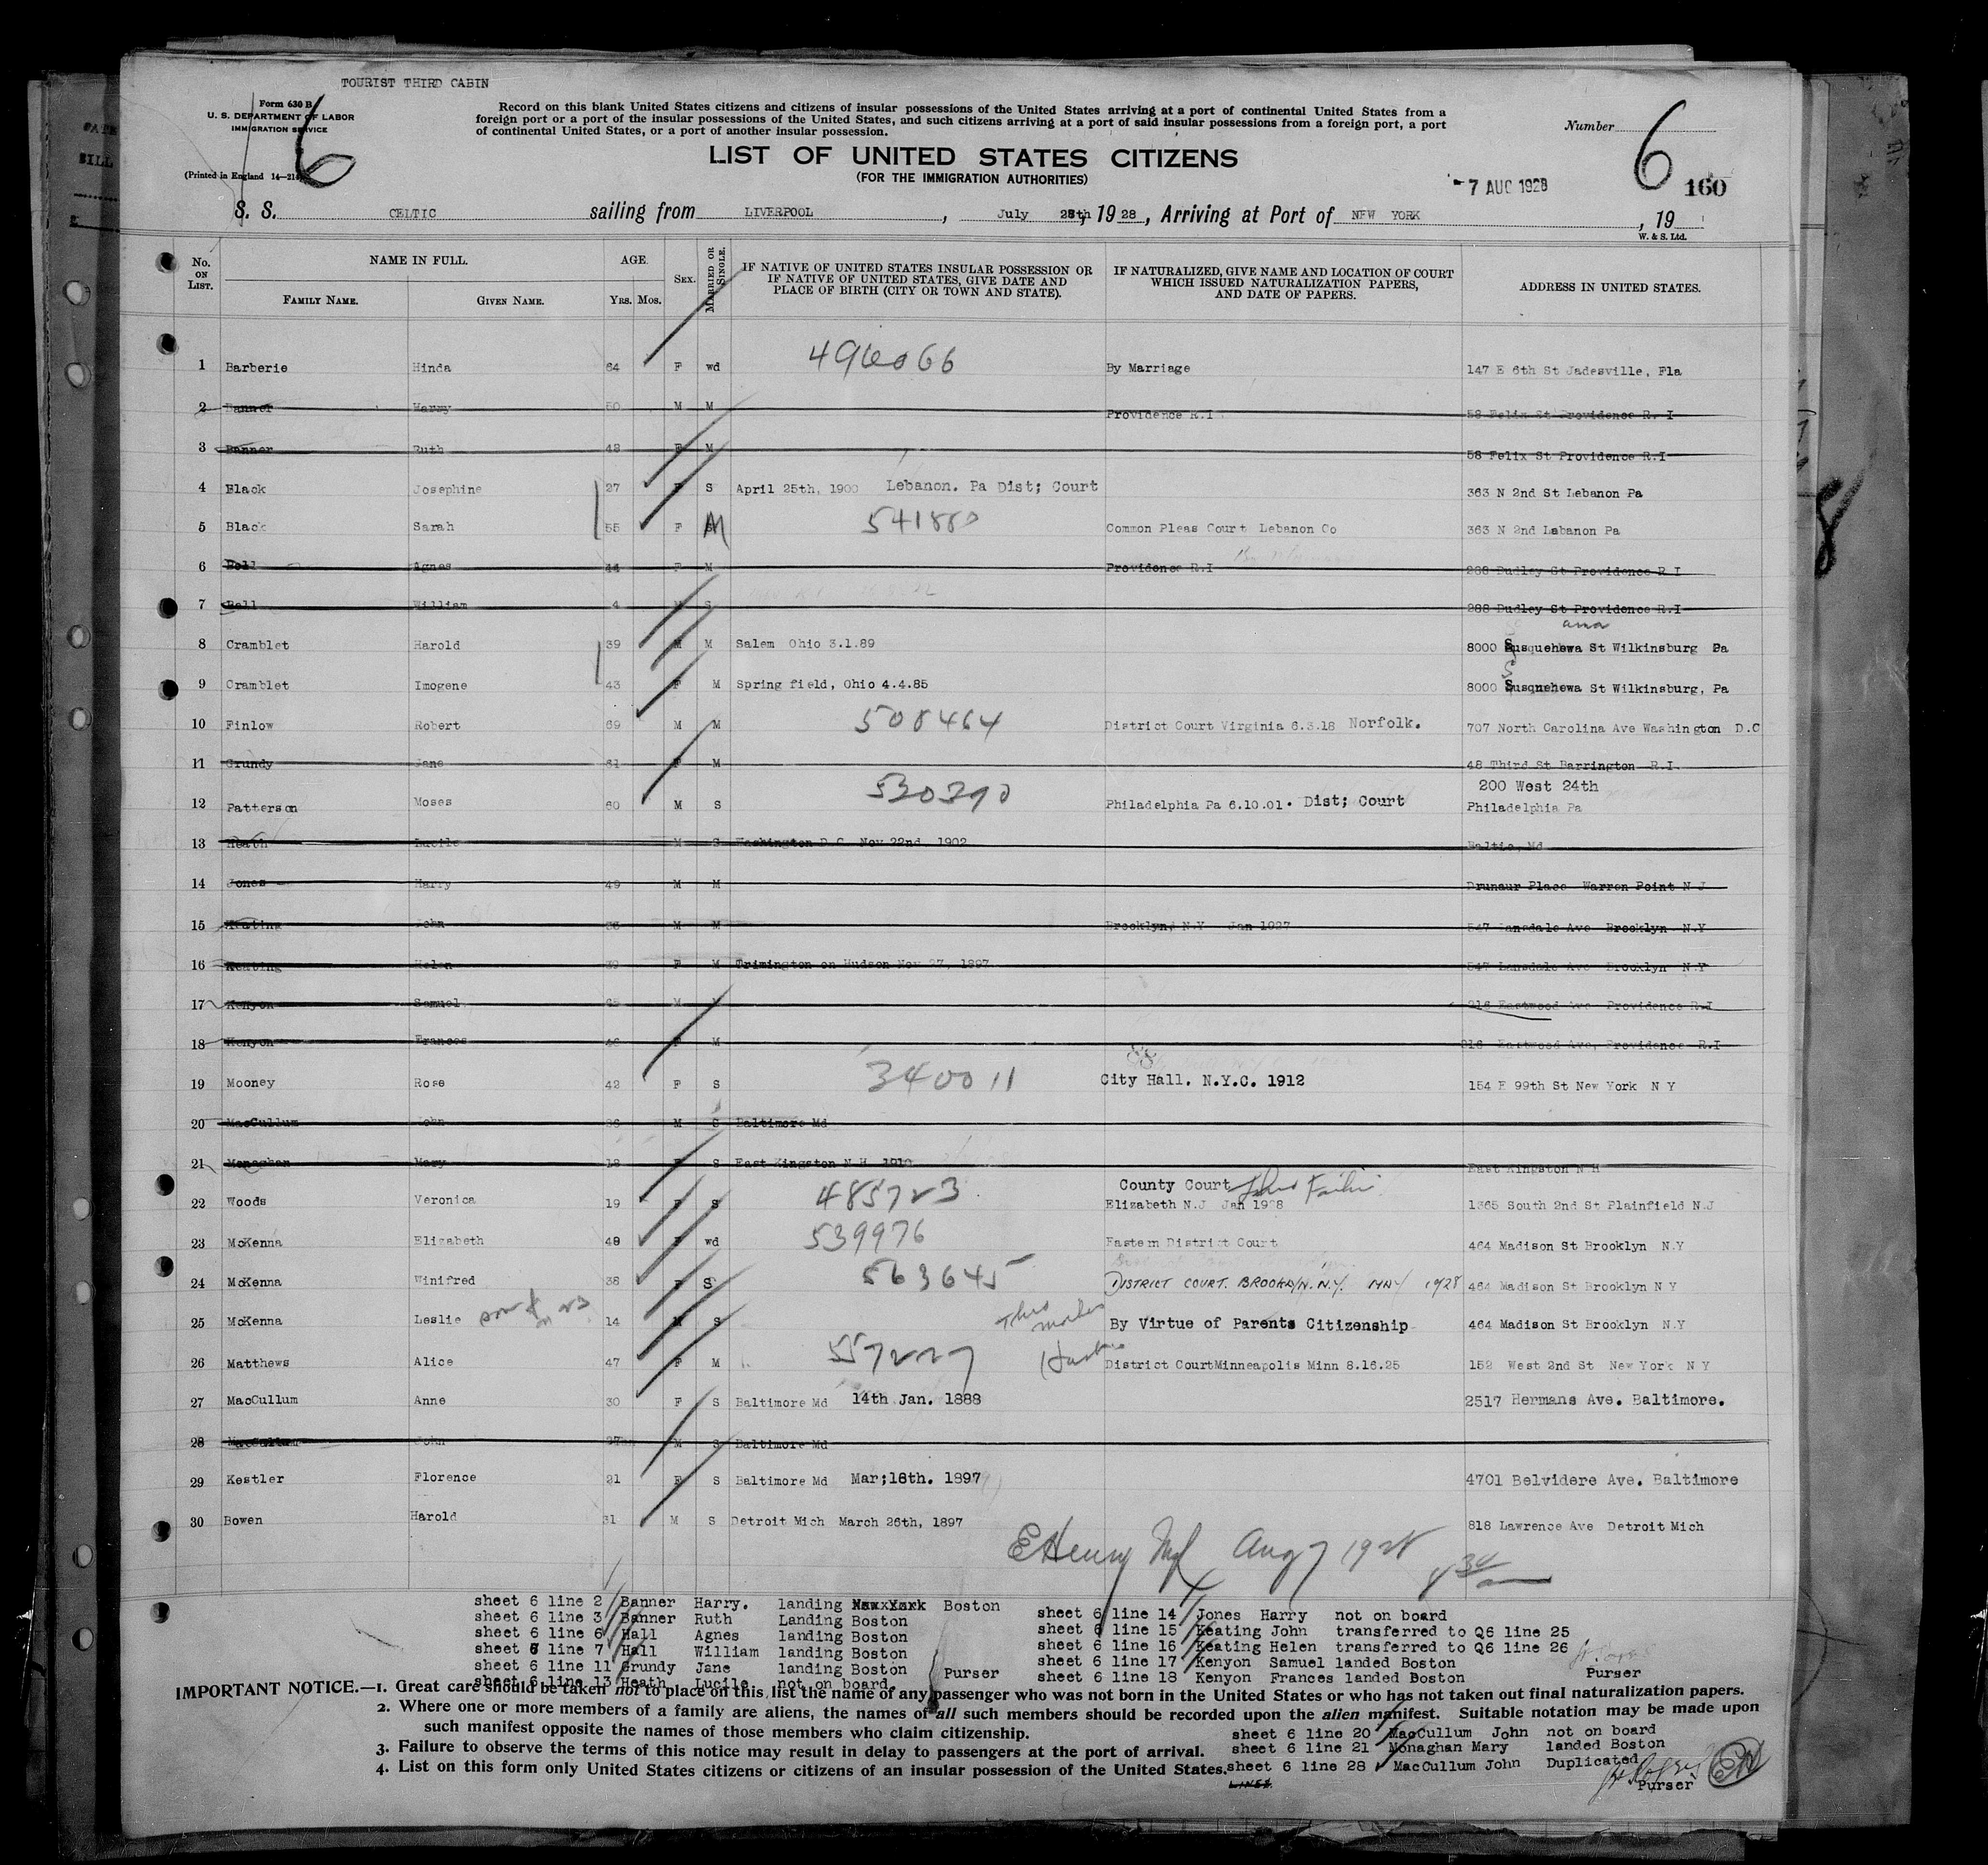 TOURIST THIRD CABIN
Form 630 B
U. S. DEPARTMENT OF LABOR
IMMIGRATION SERVICE
(Printed in England 14—21
6
Record on this blank United States citizens and citizens of insular possessions of the United States arriving at a port of continental United States from a
foreign port or a port of the insular possessions of the United States, and such citizens arriving at a port of said insular possessions from a foreign port, a port
of continental United States, or a port of another insular possession.
Number
6
160
LIST OF UNITED STATES CITIZENS
(FOR THE IMMIGRATION AUTHORITIES)
7 AUG 1928
S. S. CELTIC sailing from LIVERPOOL, July 28th, 1928, Arriving at Port of NEW YORK, 19
W. & S. Ltd.
No. ON LIST. NAME IN FULL. AGE. SEX. MARRIED OR SINGLE. IF NATIVE OF UNITED STATES INSULAR POSSESSION OR IF NATIVE OF UNITED STATES, GIVE DATE AND PLACE OF BIRTH (CITY OR TOWN AND STATE). IF NATURALIZED, GIVE NAME AND LOCATION OF COURT WHICH ISSUED NATURALIZATION PAPERS, AND DATE OF PAPERS. ADDRESS IN UNITED STATES.
FAMILY NAME. GIVEN NAME. YRS. MOS.
1 Barberie Hinda 64 F wd 496066 By Marriage 147 E 6th St Jadesville, Fla
2 Banner Harry 50 M M Providence R.I 58 Felix St Providence R. I
3 Banner Ruth 48 F M 58 Felix St Providence R.I
4 Black Josephine 27 F S April 25th, 1900 Lebanon. Pa Dist; Court 363 N 2nd St Lebanon Pa
5 Black Sarah 55 F M 541880 Common Pleas Court Lebanon Co 363 N 2nd Lebanon Pa
6 Bell Agnes 44 F M Providence R.I 288 Dudley St Providence R I
7 Bell William 4 M S 288 Dudley St Providence R.I
anna
8 Cramblet Harold 39 M M Salem Ohio 3.1.89 8000 Susquehewa St Wilkinsburg Pa
9 Cramblet Imogene 43 F M Spring field, Ohio 4.4.85 8000 Susquehewa St Wilkinsburg, Pa
10 Finlow Robert 69 M M 508464 District Court Virginia 6.3.18 Norfolk. 707 North Carolina Ave Washington D.C
11 Grundy Jane 61 F M 48 Third St Barrington R.I.
200 West 24th
12 Patterson Moses 60 M S 530390 Philadelphia Pa 6.10.01. Dist; Court Philadelphia Pa
13 Heath Lucile M S Washington D.C. Nov 22nd, 1902 Baltic, Md
14 Jones Harry 49 M M Drunaur Place Warren Point N J
15 Keating John M M Brooklyn, N.Y Jan 1927 547 Lansdale Ave Brooklyn N.Y
16 Keating Helen F M Trimington on Hudson Nov 27, 1897 547 Lansdale Ave Brooklyn N.Y
17 Kenyon Samuel M M 216 Eastwood Ave Providence R.I
18 Kenyon Frances 46 F M 216 Eastwood Ave, Providence R.I
19 Mooney Rose 42 F S 340011 City Hall. N.Y.C. 1912 154 E 99th St New York N Y
20 MacCullum John M S Baltimore Md
21 Monaghan Mary 18 F S East Kingston N H 1910 East Kingston N H
County Court
22 Woods Veronica 19 F S 485723 Elizabeth N.J Jan 1928 1365 South 2nd St Plainfield N.J
23 McKenna Elizabeth 48 F wd 539976 Eastern District Court 464 Madison St Brooklyn N.Y
24 McKenna Winifred 38 F S 563645 DISTRICT COURT. BROOKLYN. N.Y. MAY 1928 464 Madison St Brooklyn N Y
25 McKenna Leslie 14 M S Thro mother By Virtue of Parents Citizenship 464 Madison St Brooklyn N.Y
26 Matthews Alice 47 F M 557227 District CourtMinneapolis Minn 8.16.25 152 West 2nd St New York N Y
27 MacCullum Anne 30 F S Baltimore Md 14th Jan. 1888 2517 Hermans Ave. Baltimore.
28 MacCullum John 27 M S Baltimore Md
29 Kestler Florence 21 F S Baltimore Md Mar;18th. 1897 4701 Belvidere Ave. Baltimore
30 Bowen Harold 31 M S Detroit Mich March 26th, 1897 818 Lawrence Ave Detroit Mich
E Henry Aug 7 1928
sheet 6 line 2 Banner Harry. landing New York Boston
sheet 6 line 3 Banner Ruth Landing Boston
sheet 6 line 6 Hall Agnes landing Boston
sheet 6 line 7 Hall William landing Boston
sheet 6 line 11 Grundy Jane landing Boston
sheet 6 line 13 Heath Lucile not on board.
Purser
sheet 6 line 14 Jones Harry not on board
sheet 6 line 15 Keating John transferred to Q6 line 25
sheet 6 line 16 Keating Helen transferred to Q6 line 26
sheet 6 line 17 Kenyon Samuel landed Boston
sheet 6 line 18 Kenyon Frances landed Boston
Purser
IMPORTANT NOTICE.—1. Great care should be taken not to place on this list the name of any passenger who was not born in the United States or who has not taken out final naturalization papers.
2. Where one or more members of a family are aliens, the names of all such members should be recorded upon the alien manifest. Suitable notation may be made upon
such manifest opposite the names of those members who claim citizenship.
3. Failure to observe the terms of this notice may result in delay to passengers at the port of arrival.
4. List on this form only United States citizens or citizens of an insular possession of the United States.
sheet 6 line 20 MacCullum John not on board
sheet 6 line 21 Monaghan Mary landed Boston
sheet 6 line 28 MacCullum John Duplicated
LINES.
Purser